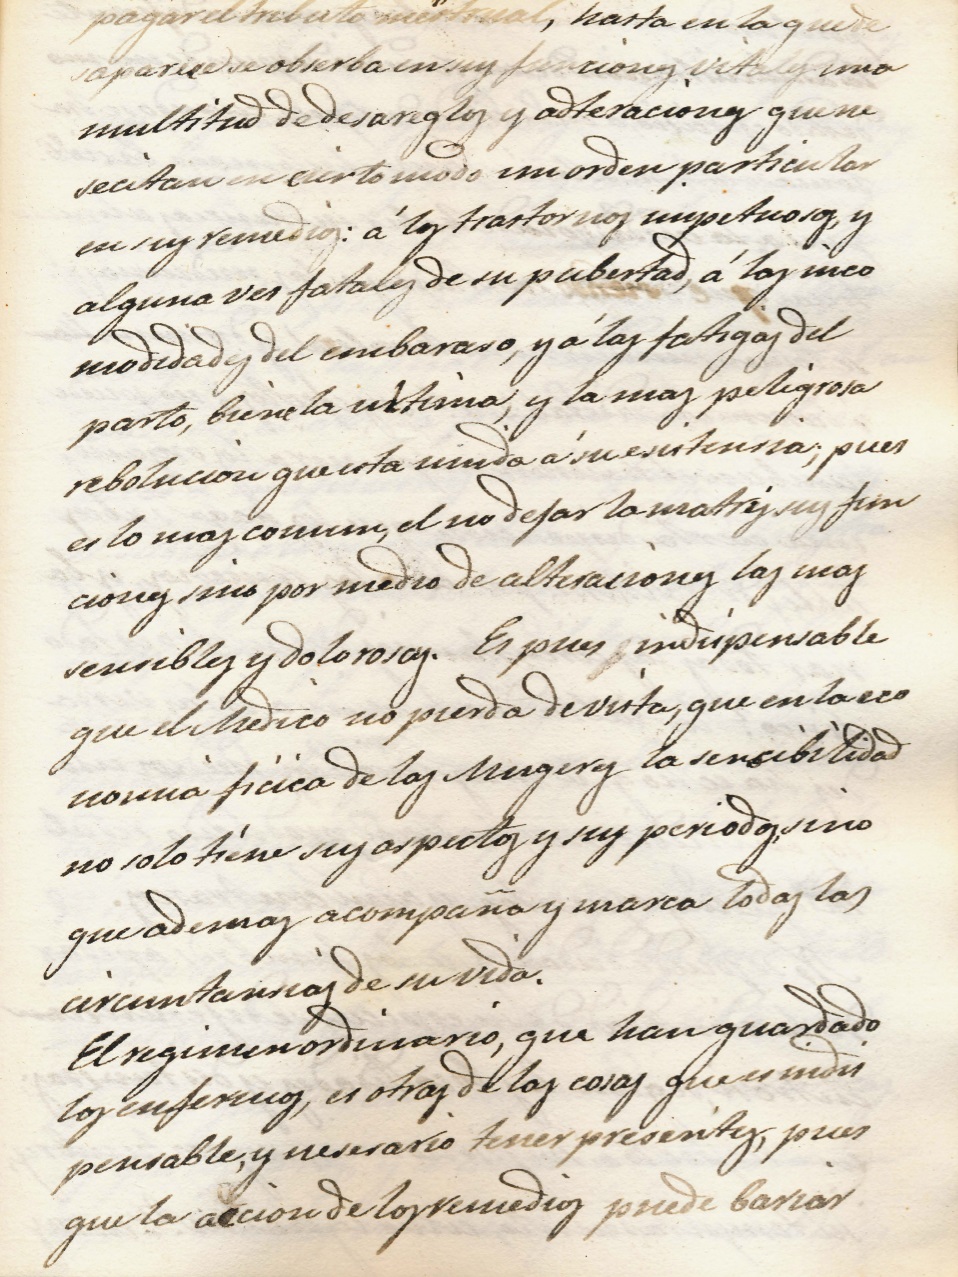 pagar el tributo menstrual, hasta en la que de
saparece se obserba en sus funciones vitales una
multitud de desareglos y adteraciones que ne
secitan en cierto modo un orden particular
en sus remedios: á los trastornos impetuosos, y
alguna ves fatales de su pubertad, á las inco
modidades del embaraso, y á las fatigas del
parto, biene la ultima, y la mas peligrosa
rebolucion que esta unida á su esistensia; pues
es lo mas comun, el no dejar la matris sus fun
ciones sino por medio de alteraciones las mas
sensibles y dolorosas. Es pues indispensable
que el Medico no pierda de vista, que en la eco
nomia ficica de las Mugeres la sencibilidad
no solo tiene sus aspectos y sus periodos, sino
que ademas acompaña y marca todas las
circuntansias de su vida.
El regimen ordinario, que han guardado
los enfermos, es otras de las cosas que es indis
pensable, y nesesario tener presentes, pues
que la accion de los remedios puede bariar